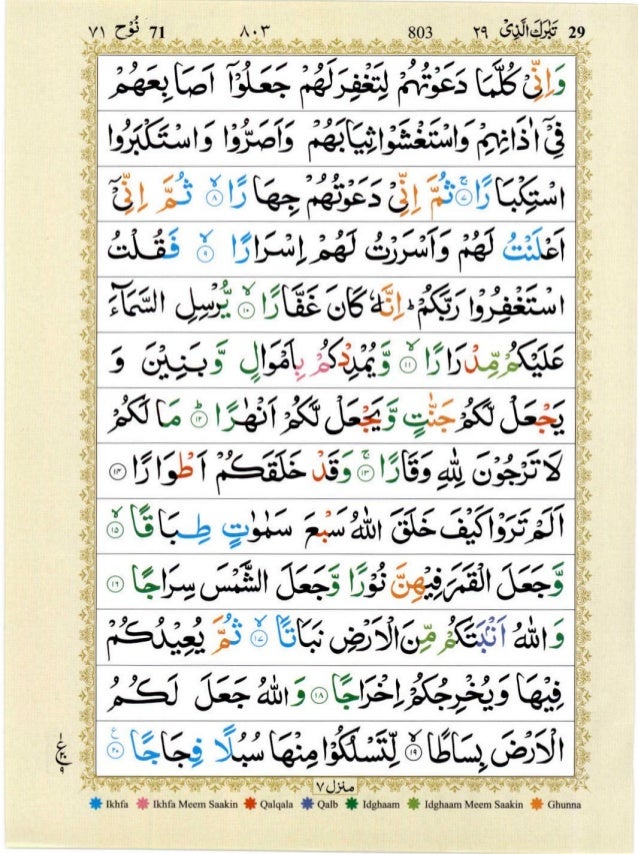 29 تَبٰرَكَ الَّذِىْ ٢٩ 803 ٨٠٣ 71 نُوْح ٧١
وَاِنِّىْ كُلَّمَا دَعَوْتُهُمْ لِتَغْفِرَلَهُمْ جَعَلُوْۤا اَصَابِعَهُمْ
فِىْۤ اٰذَانِهِمْ وَاسْتَغْشَوْا ثِيَابَهُمْ وَاَصَرُّوْا وَاسْتَكْبَرُوا
اسْتِكْبَارًا ۚ‏ ﴿۷﴾ ثُمَّ اِنِّىْ دَعَوْتُهُمْ جِهَارًا ۙ‏ ﴿۸﴾ ثُمَّ اِنِّىْۤ
اَعْلَنْتُ لَهُمْ وَاَسْرَرْتُ لَهُمْ اِسْرَارًا ۙ‏ ﴿۹﴾ فَقُلْتُ
اسْتَغْفِرُوْا رَبَّكُمْ ؕ اِنَّهٗ كَانَ غَفَّارًا ۙ‏ ﴿۱۰﴾ يُّرْسِلِ السَّمَآءَ
عَلَيْكُمْ مِّدْرَارًا ۙ‏ ﴿۱۱﴾ وَّيُمْدِدْكُمْ بِاَمْوَالٍ وَّبَنِيْنَ وَ
يَجْعَلْ لَّكُمْ جَنّٰتٍ وَّيَجْعَلْ لَّكُمْ اَنْهٰرًا ؕ‏ ﴿۱۲﴾ مَا لَكُمْ
لَا تَرْجُوْنَ لِلّٰهِ وَقَارًا ۚ‏ ﴿۱۳﴾ وَقَدْ خَلَقَكُمْ اَطْوَارًا‏ ﴿۱۴﴾
اَلَمْ تَرَوْا كَيْفَ خَلَقَ اللّٰهُ سَبْعَ سَمٰوٰتٍ طِبَاقًا ۙ‏ ﴿۱۵﴾
وَّجَعَلَ الْقَمَرَ فِيْهِنَّ نُوْرًا وَّجَعَلَ الشَّمْسَ سِرَاجًا‏ ﴿۱۶﴾
وَاللّٰهُ اَنْۢبَتَكُمْ مِّنَ الْاَرْضِ نَبَاتًا ۙ‏ ﴿۱۷﴾ ثُمَّ يُعِيْدُكُمْ
فِيْهَا وَيُخْرِجُكُمْ اِخْرَاجًا‏ ﴿۱۸﴾ وَاللّٰهُ جَعَلَ لَـكُمُ
الْاَرْضَ بِسَاطًا ۙ‏ ﴿۱۹﴾ لِّتَسْلُكُوْا مِنْهَا سُبُلًا فِجَاجًا ﴿۲۰﴾ ع
منزل ٧
Ikhfa Ikhfa Meem Saakin Qalqala Qalb Idghaam Idghaam Meem Saakin Ghunna